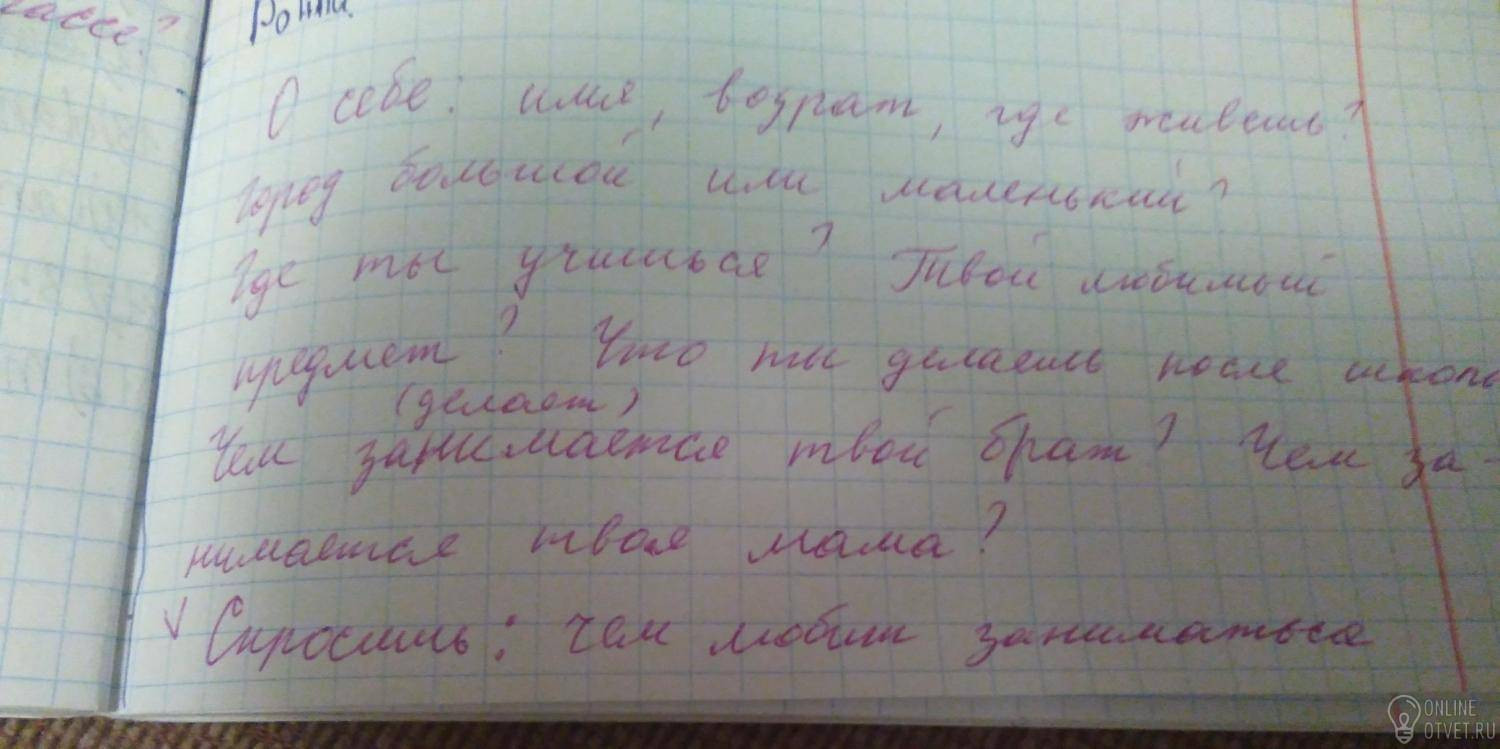 О себе: имя, возрат, где живешь?
Город большой или маленький?
Где ты учишься? Твой любимый
предмет? Что ты делаешь после
(делает)
Чем занимается твой брат? Чем за-
нимается твоя мама?
Спросишь: чем любит заниматься
ONLINE
OTVET.RU